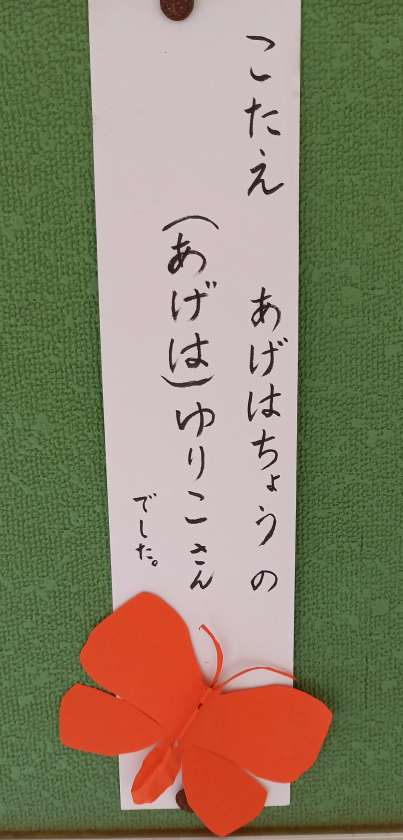 こたえ　あげはちょうの
（あげは）ゆりこさん
でした。